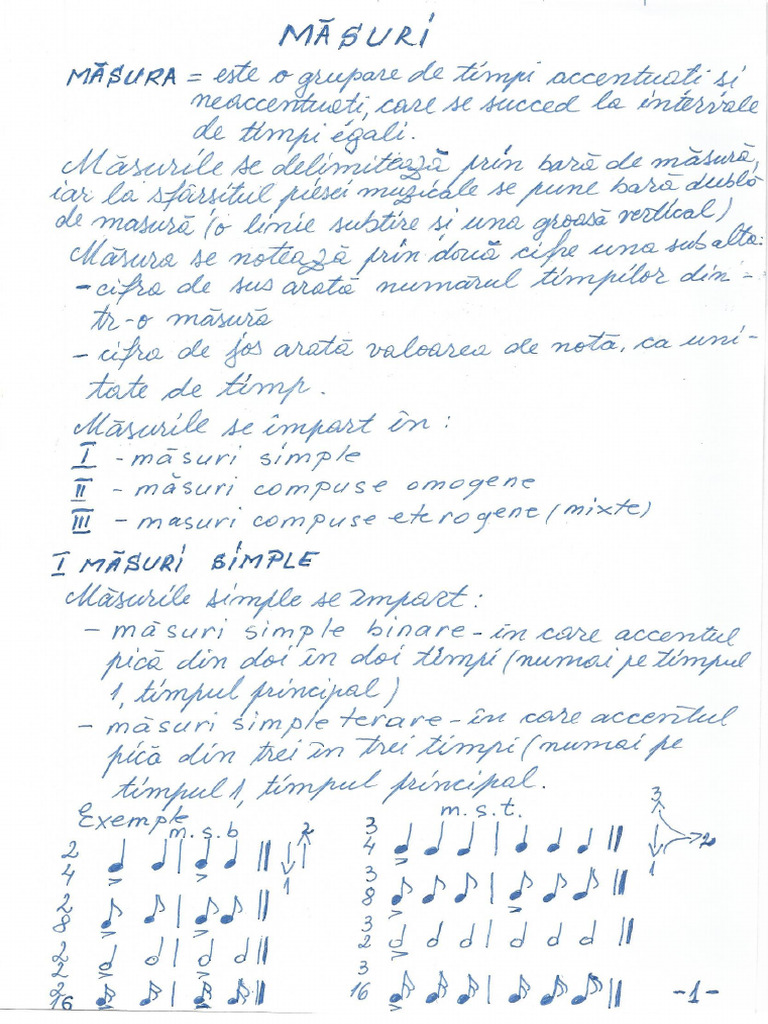 MĂSURI
MĂSURA = este o grupare de timpi accentuati si
neaccentuati, care se succed la intervale
de timpi egali.
Măsurile se delimitează prin bară de măsură,
iar la sfârsitul piesei muzicale se pune bară dublă
de masură (o linie subtire si una groasă vertical)
Măsura se notează prin două cifre una sub alta:
- cifra de sus arată numărul timpilor din-
tr-o măsură
- cifra de jos arată valoarea de notă, ca uni-
tate de timp.
Măsurile se împart în:
I - măsuri simple
II - măsuri compuse omogene
III - masuri compuse eterogene (mixte)
I MĂSURI SIMPLE
Măsurile simple se împart:
- măsuri simple binare - în care accentul
pică din doi în doi timpi (numai pe timpul
1, timpul principal)
- măsuri simple terare - în care accentul
pică din trei în trei timpi (numai pe
timpul 1, timpul principal.
Exemple
m.s.b
2
4
2
8
2
2
2
16
2
1
m.s.t.
3
4
3
8
3
2
3
16
3
2
1
-1-